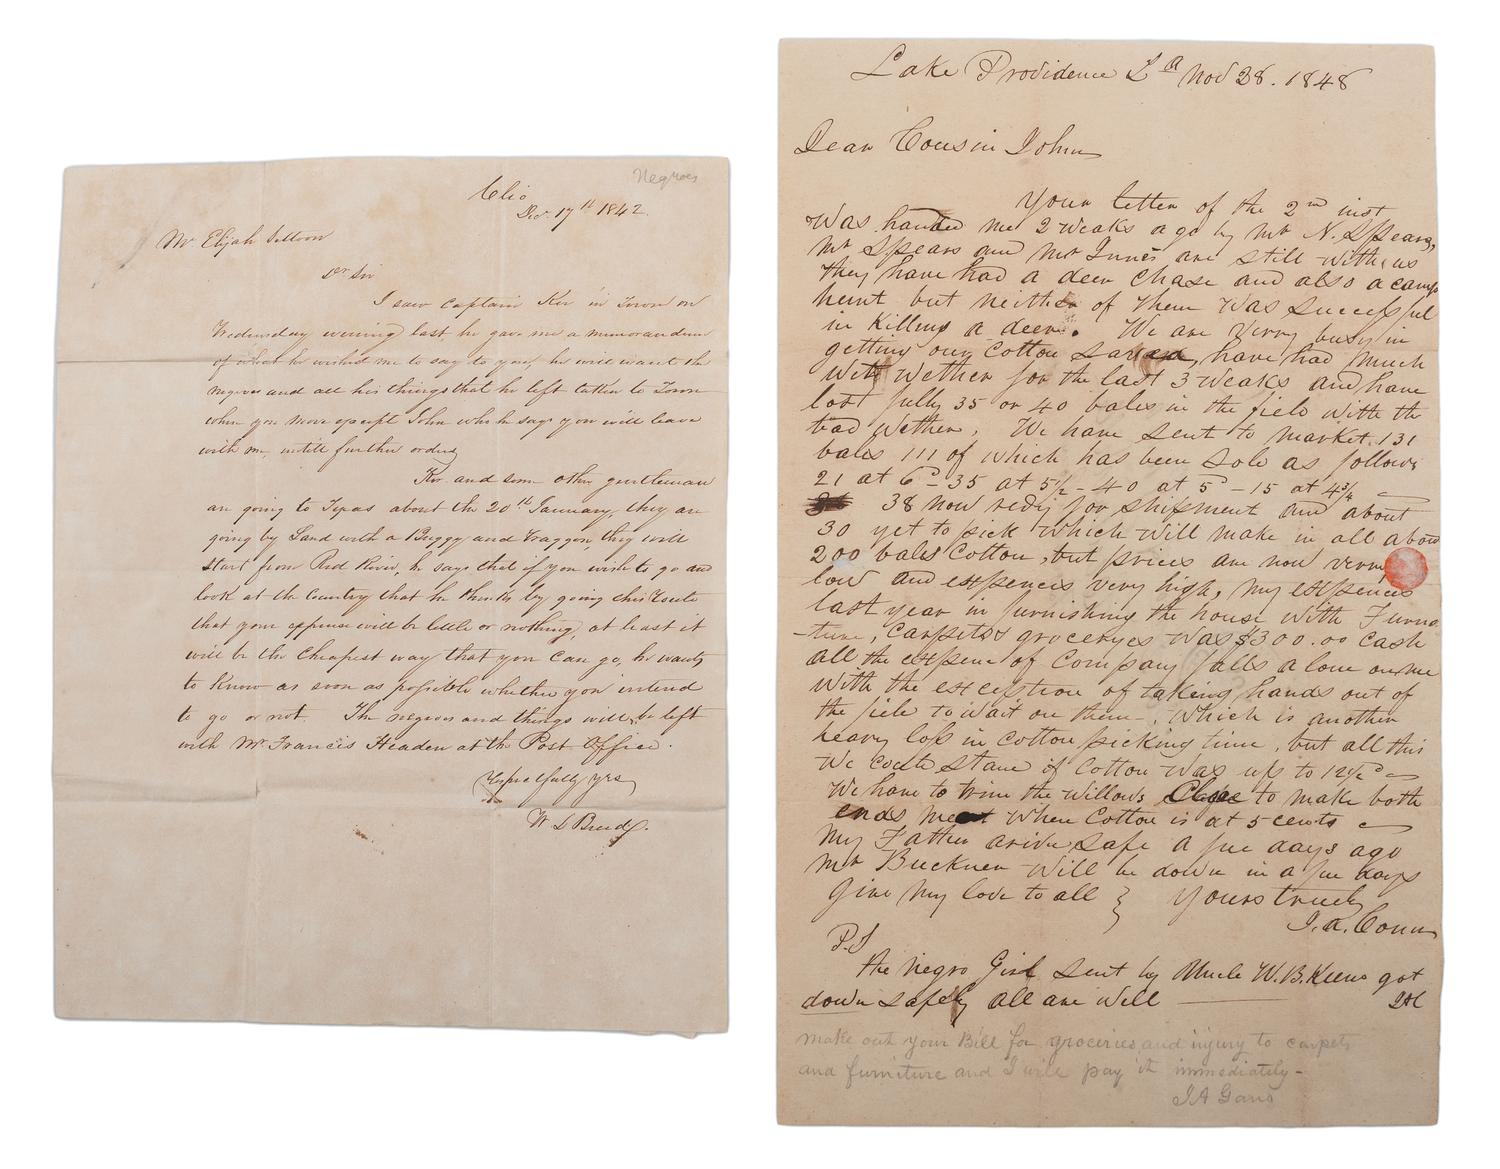 Negroes
Clio
Dec. 17th 1842.
Mr Elijah
Dr Sir
I saw Captain Ker in Town on
Wednesday evening last, he gave me a memorandum
of what he wished me to say to you, he will want the
negroes and all his things that he left taken to Town
when you move except John who he says you will leave
with me, untill further orders
Ker and some other gentleman
are going to Texas about the 20th January, they are
going by Land with a Buggy and Waggon, they will
start from Red River, he says that if you wish to go and
look at the Country that he thinks by going this Route
that your expense will be little or nothing, at least it
will be the cheapest way that you can go, he wants
to know as soon as possible whether you intend
to go or not. The negroes and things will be left
with Mr Francis Headen at the Post Office.
Respectfully yrs
W L
Lake Providence La Nov 28. 1848
Dear Cousin John
Your letter of the 2nd inst
Was handed me 2 weaks ago by Mr N. Spears,
Mr Spears and Mr Innes are still with us
they have had a deer chase and also a camp
hunt but neither of them was succesful
in killing a deer. We are verry busy in
getting our Cotton saved, have had much
wett wether for the last 3 weaks and have
lost fully 35 or 40 bales in the field with the
bad wether. We have sent to market 131
bales 111 of which has been sole as follows
21 at 6c - 35 at 5 1/2 - 40 at 5c - 15 at 4 3/4
38 now redy for shipment and about
30 yet to pick which will make in all about
200 bales Cotton, but prices are now verry
low and expences very high, my expences
last year in furnishing the house with Furna
-ture, carpets groceryes was $300.00 cash
all the expence of Company falls alone on me
with the exception of taking hands out of
the field to wait on them-, which is another
heavy loss in cotton picking time, but all this
We could stand if cotton was up to 12 1/2c
We have to trim the willows close to make both
ends meet when Cotton is at 5 cents
my Father arived safe a few days ago
Mr Buckner will be down in a few days
give my love to all } Yours truly
J. A. Conn
P.S
the negro Girl sent by Uncle W. B. Keene got
down safely all are well
make out your Bill for groceries and injury to carpets
and furniture and I will pay it immediately -
J A Gano